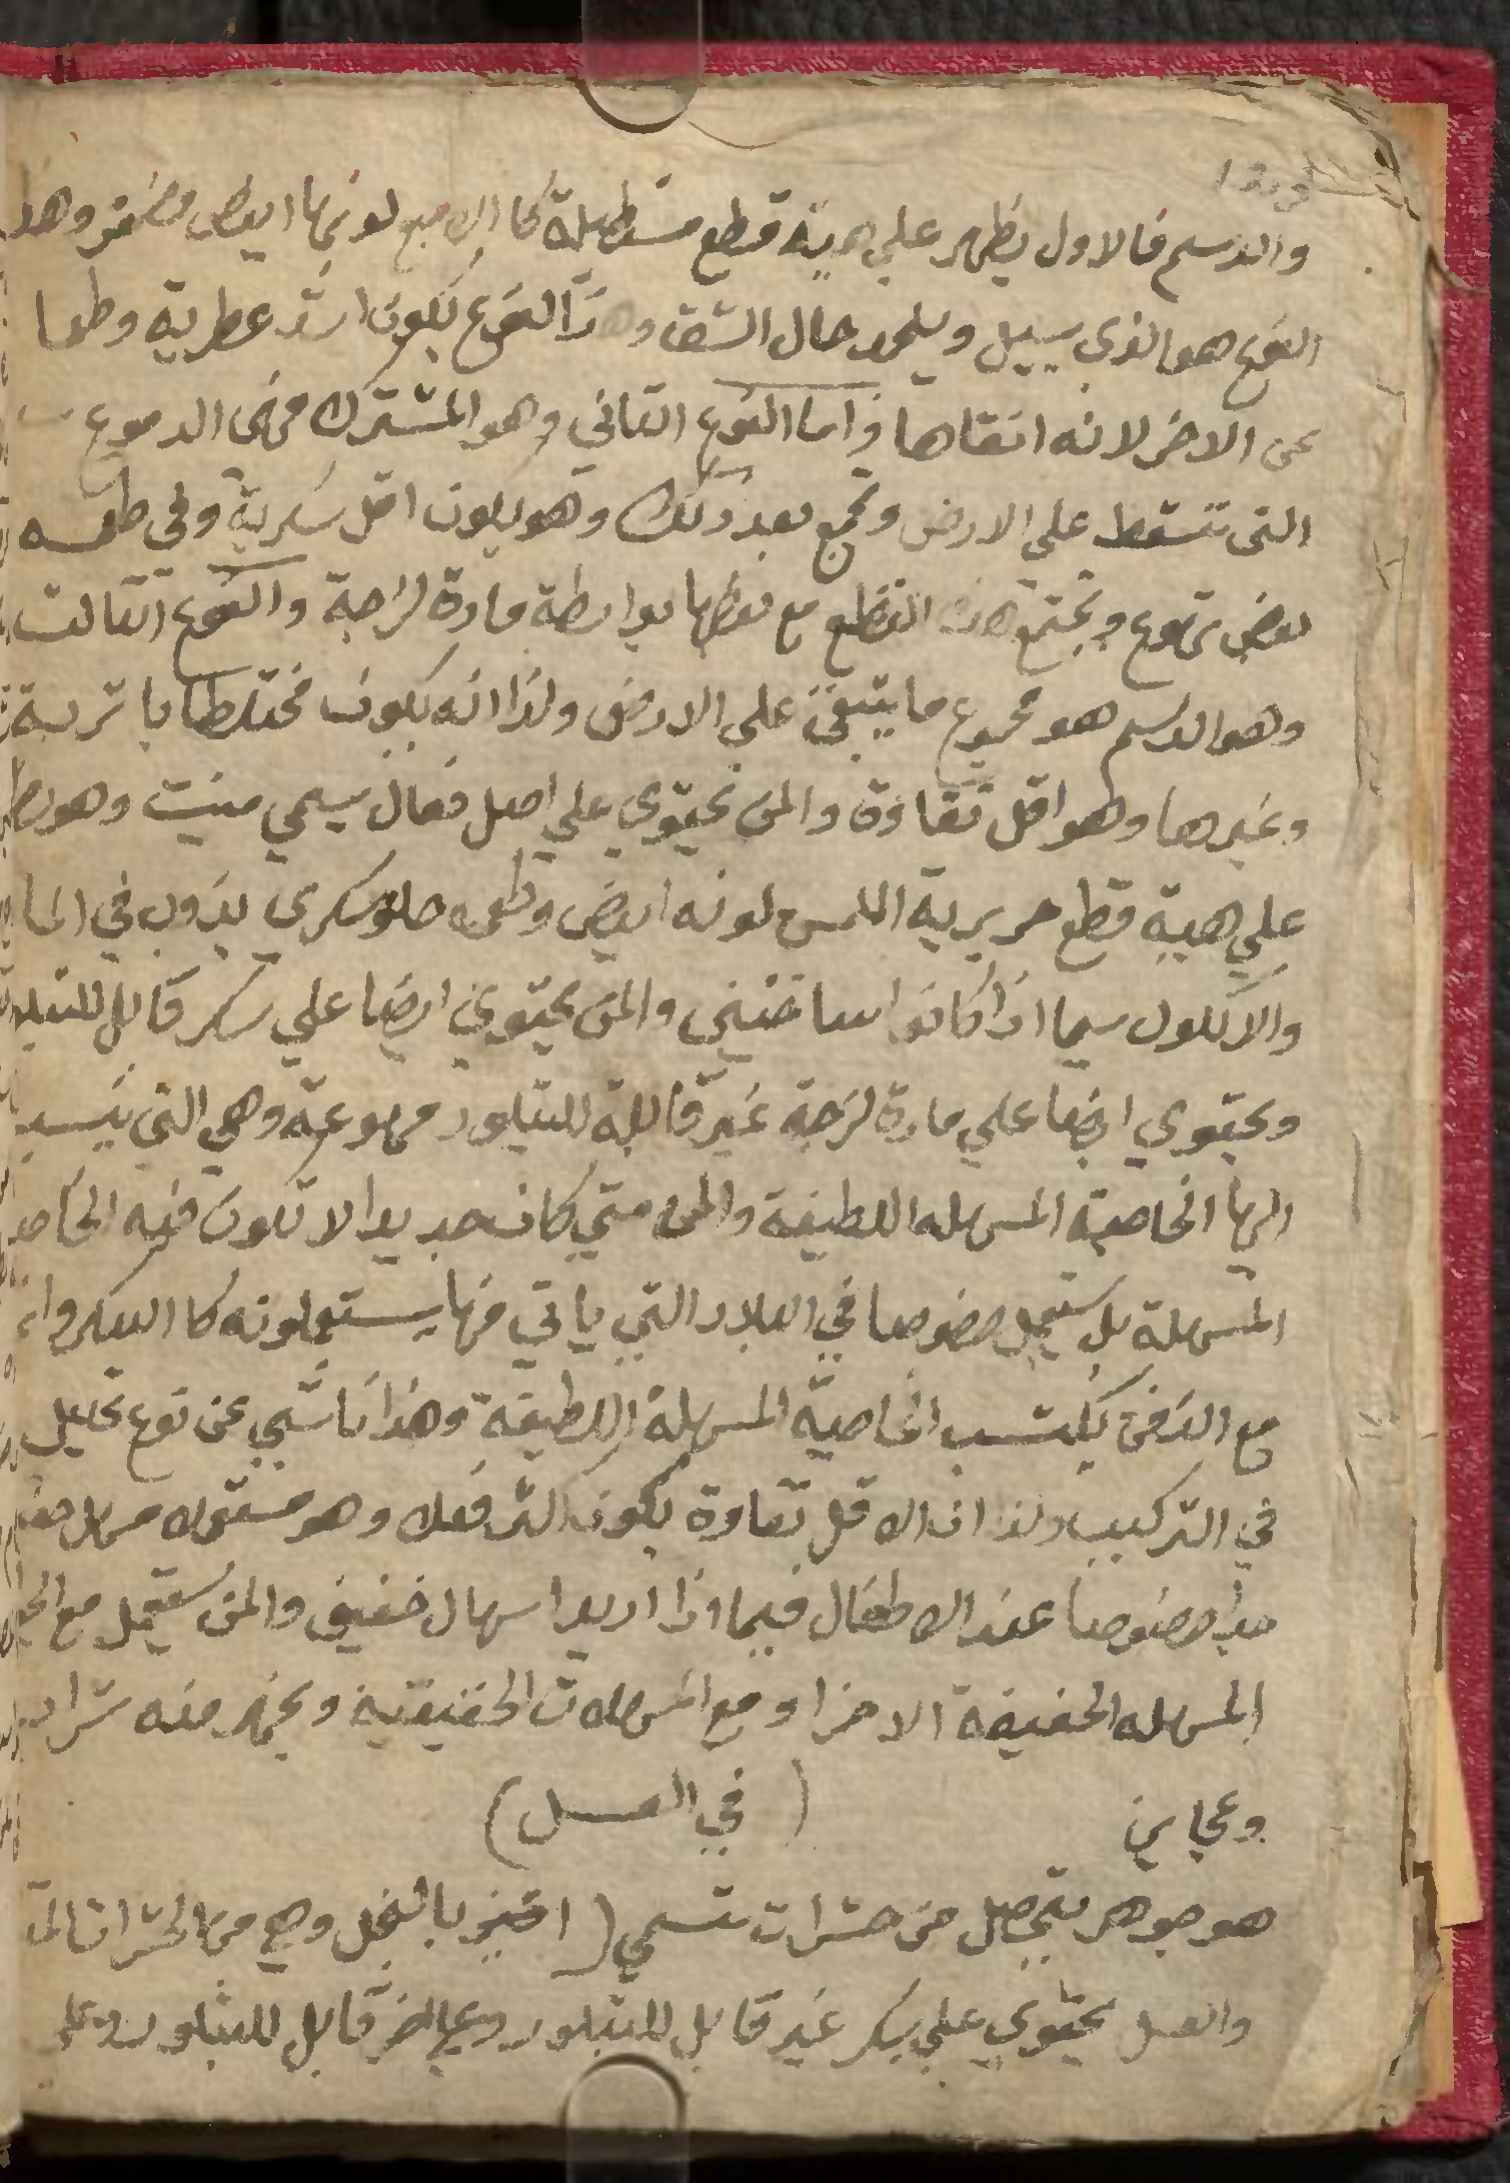 والدسم فالاول يظهر علي هيئة قطع مستطيلة كا الاصبع لونها ابيض مصفر وهد
النوع هو الذي يسيل ويجمد حال الشق وهذا النوع يكون ارتد عطرية وطعما
عن الاخر لانه انقاها واما النوع التاني وهو المشترك فهي الدموع
التي تتسقط علي الارض وتجمع بعد ذلك وهو يكون اقل سكرية وفي طعمه
بعض تهوع وتجتمع هذه القطع مع بعضها بواسطة مادة لزجة والنوع التالت
وهو الدسم هو مجموع ما يتبقي علي الارض ولذا انه يكون مختلطا با تربة
وغيرها وهو اقل نقاوة والمن يحتوي علي اصل فعال يسمي منيت وهو يظهر
علي هيية قطع حريرية اللمس لونه ابيض وطعمه حلو سكري يذوب في الما
والالكلول سيما اذا كانوا ساخنين والمن يحتوي ايضا علي سكر قابل للتبلور
ويحتوي ايضا علي مادة لزجة غير قابلة للتبلور مهوعة وهي التي ينسب
اليها الخاصية المسهله اللطيفة والمن متي كان جديدا لا تكون فيه الخاصية
المسهلة بل يستعمل خصوصا في البلاد التي ياتي منها يستعملونه كا السكر وانه
مع الزمن يكتسب الخاصية المسهلة اللطيفة وهذا ناشي عن نوع تحليل
في التركيب ولذا ان الاقل نقاوة يكون اكثر فعلا وهو مستعمل مسهل خفيف
جدا خصوصا عند الاطفال فيما اذا اريد اسهال خفيف والمن يستعمل مع
المسهله الخفيفة الاخرا ومع المسهلات الحقيقية ويجهز منه شراب
وعجاين
( في العسل )
هو جوهر يتحصل من حشرات تسمي ( بالنحل وهي من الحشرات
والعسل يحتوي علي سكر غير قابل للتبلور وعلي اخر قابل للتبلور وعلي